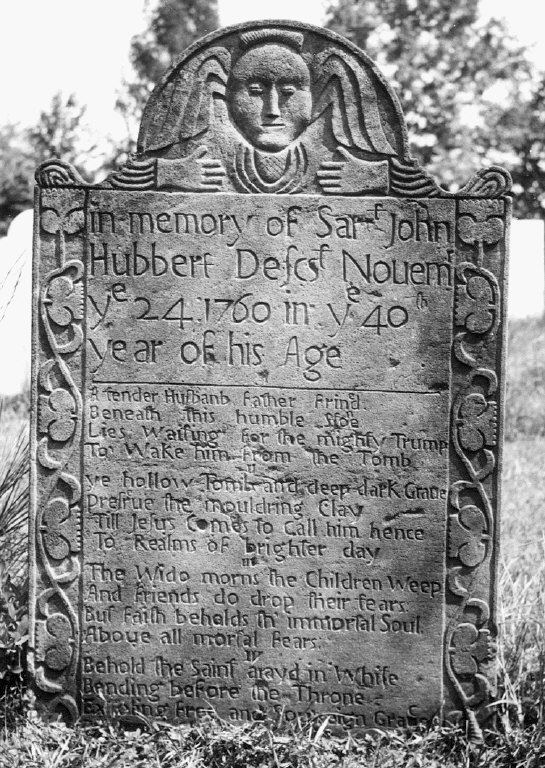 in memory of Sarᵗ John
Hubbert Descsᵗ Nouemʳ
yᵉ 24 1760 in yᵉ 40ᵗʰ
year of his Age
A tender Husbanb Father Frind
Beneath this humble
Lies Waiting for the mighty Trump
To Wake him from the Tomb
II
ye hollow Tomb and deep dark Graue
the mouldring Clay
Till Jesus Comes To Call him hence
To Realms of brighter day
III
The Wido morns the Children Weep
And friends do drop their tears
But faith beholds th immortal Soul
Aboue all mortal fears
IV
Behold the Saint arayd in White
Bending before the Throne
and